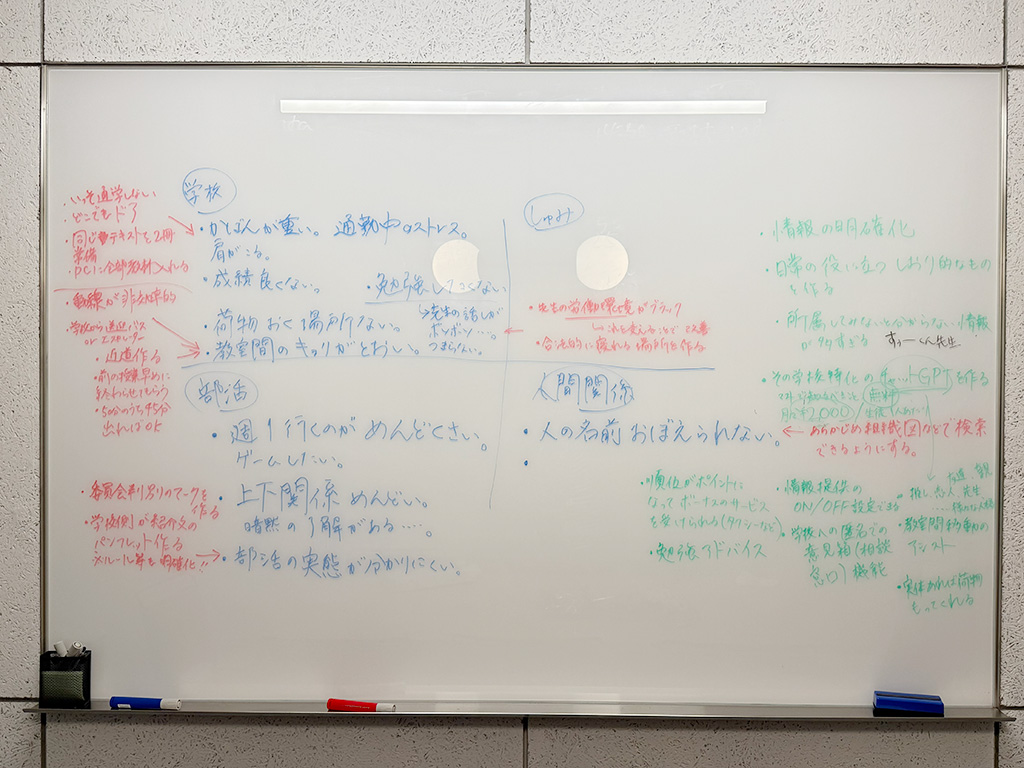 ・いっそ通学しない
・どこでもドア
・同じテキストを2冊
準備
・PCに全部教材入れる
・動線が非効率的
・学校から送迎バス
or エスカレーター
・近道作る
・前の授業早めに
終わらせてもらう
・50分のうち45分
出ればOK
学校
・かばんが重い。通勤中のストレス。
肩がこる。
・成績良くない。
・勉強したくない
→先生の話しが
ポンポン....
つまらない。
・荷物おく場所ない。
・教室間のきょりがとおい。
しゅみ
・先生の労働環境がブラック
これを変えることで改善
・合法的に寝れる場所を作る
部活
・週1行くのがめんどくさい。
ゲームしたい。
・上下関係めんどい。
暗黙の了解がある....
・部活の実態が分かりにくい。
・委員会判別のマークを
作る
・学校側が紹介文の
パンフレット作る
※ルール等も明確化!!
人間関係
・人の名前おぼえられない。
・
← あらかじめ組織図などで検索
できるようにする。
・情報の明確化
・日常の役に立つしおり的なもの
を作る
・所属してみないと分からない情報
が多すぎる
すぅーくん先生
・その学校特化の チャットGPTを作る
無料
月額2,000/生徒1人あたり
・順位がポイントに
なってボーナスのサービス
を受けられる(タクシーなど)
・勉強アドバイス
・情報提供の
ON/OFF設定できる
・学校への匿名での
意見箱(相談
窓口)機能
友達、親
推し、恋人、先生
・教室間移動の
アシスト
・実体あれば荷物
もってくれる